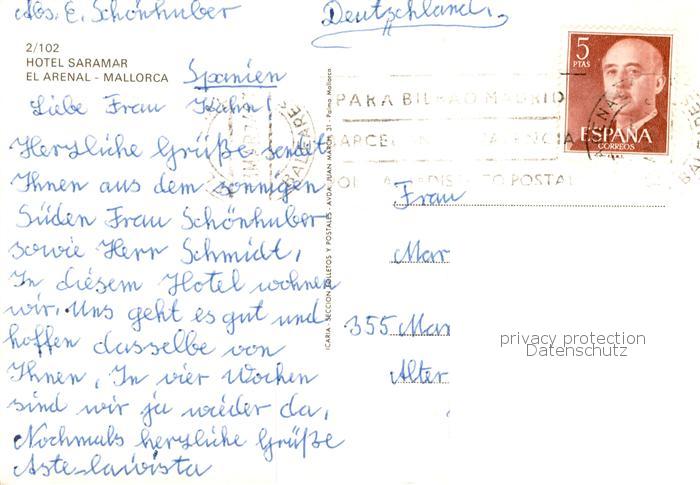 Abs. E. Schönhuber
Deutschland.
2/102
HOTEL SARAMAR
EL ARENAL - MALLORCA
Spanien
Liebe Frau Kühn!
Herzliche Grüße sendet
Ihnen aus dem sonnigen
Süden Frau Schönhuber
sowie Herr Schmidt,
In diesem Hotel wohnen
wir. Uns geht es gut und
hoffen dasselbe von
Ihnen, In vier Wochen
sind wir ja wieder da,
Nochmals herzliche Grüße
Astelawista
ICARIA - SECCION FOLLETOS Y POSTALES - AVDA. JUAN MARCH, 31 - Palma Mallorca
5
PTAS
ESPAÑA
CORREOS
PARA BILBAO MADRID
POSTAL
BALEARES
Frau
Mar
355 Mar
Alter
privacy protection
Datenschutz